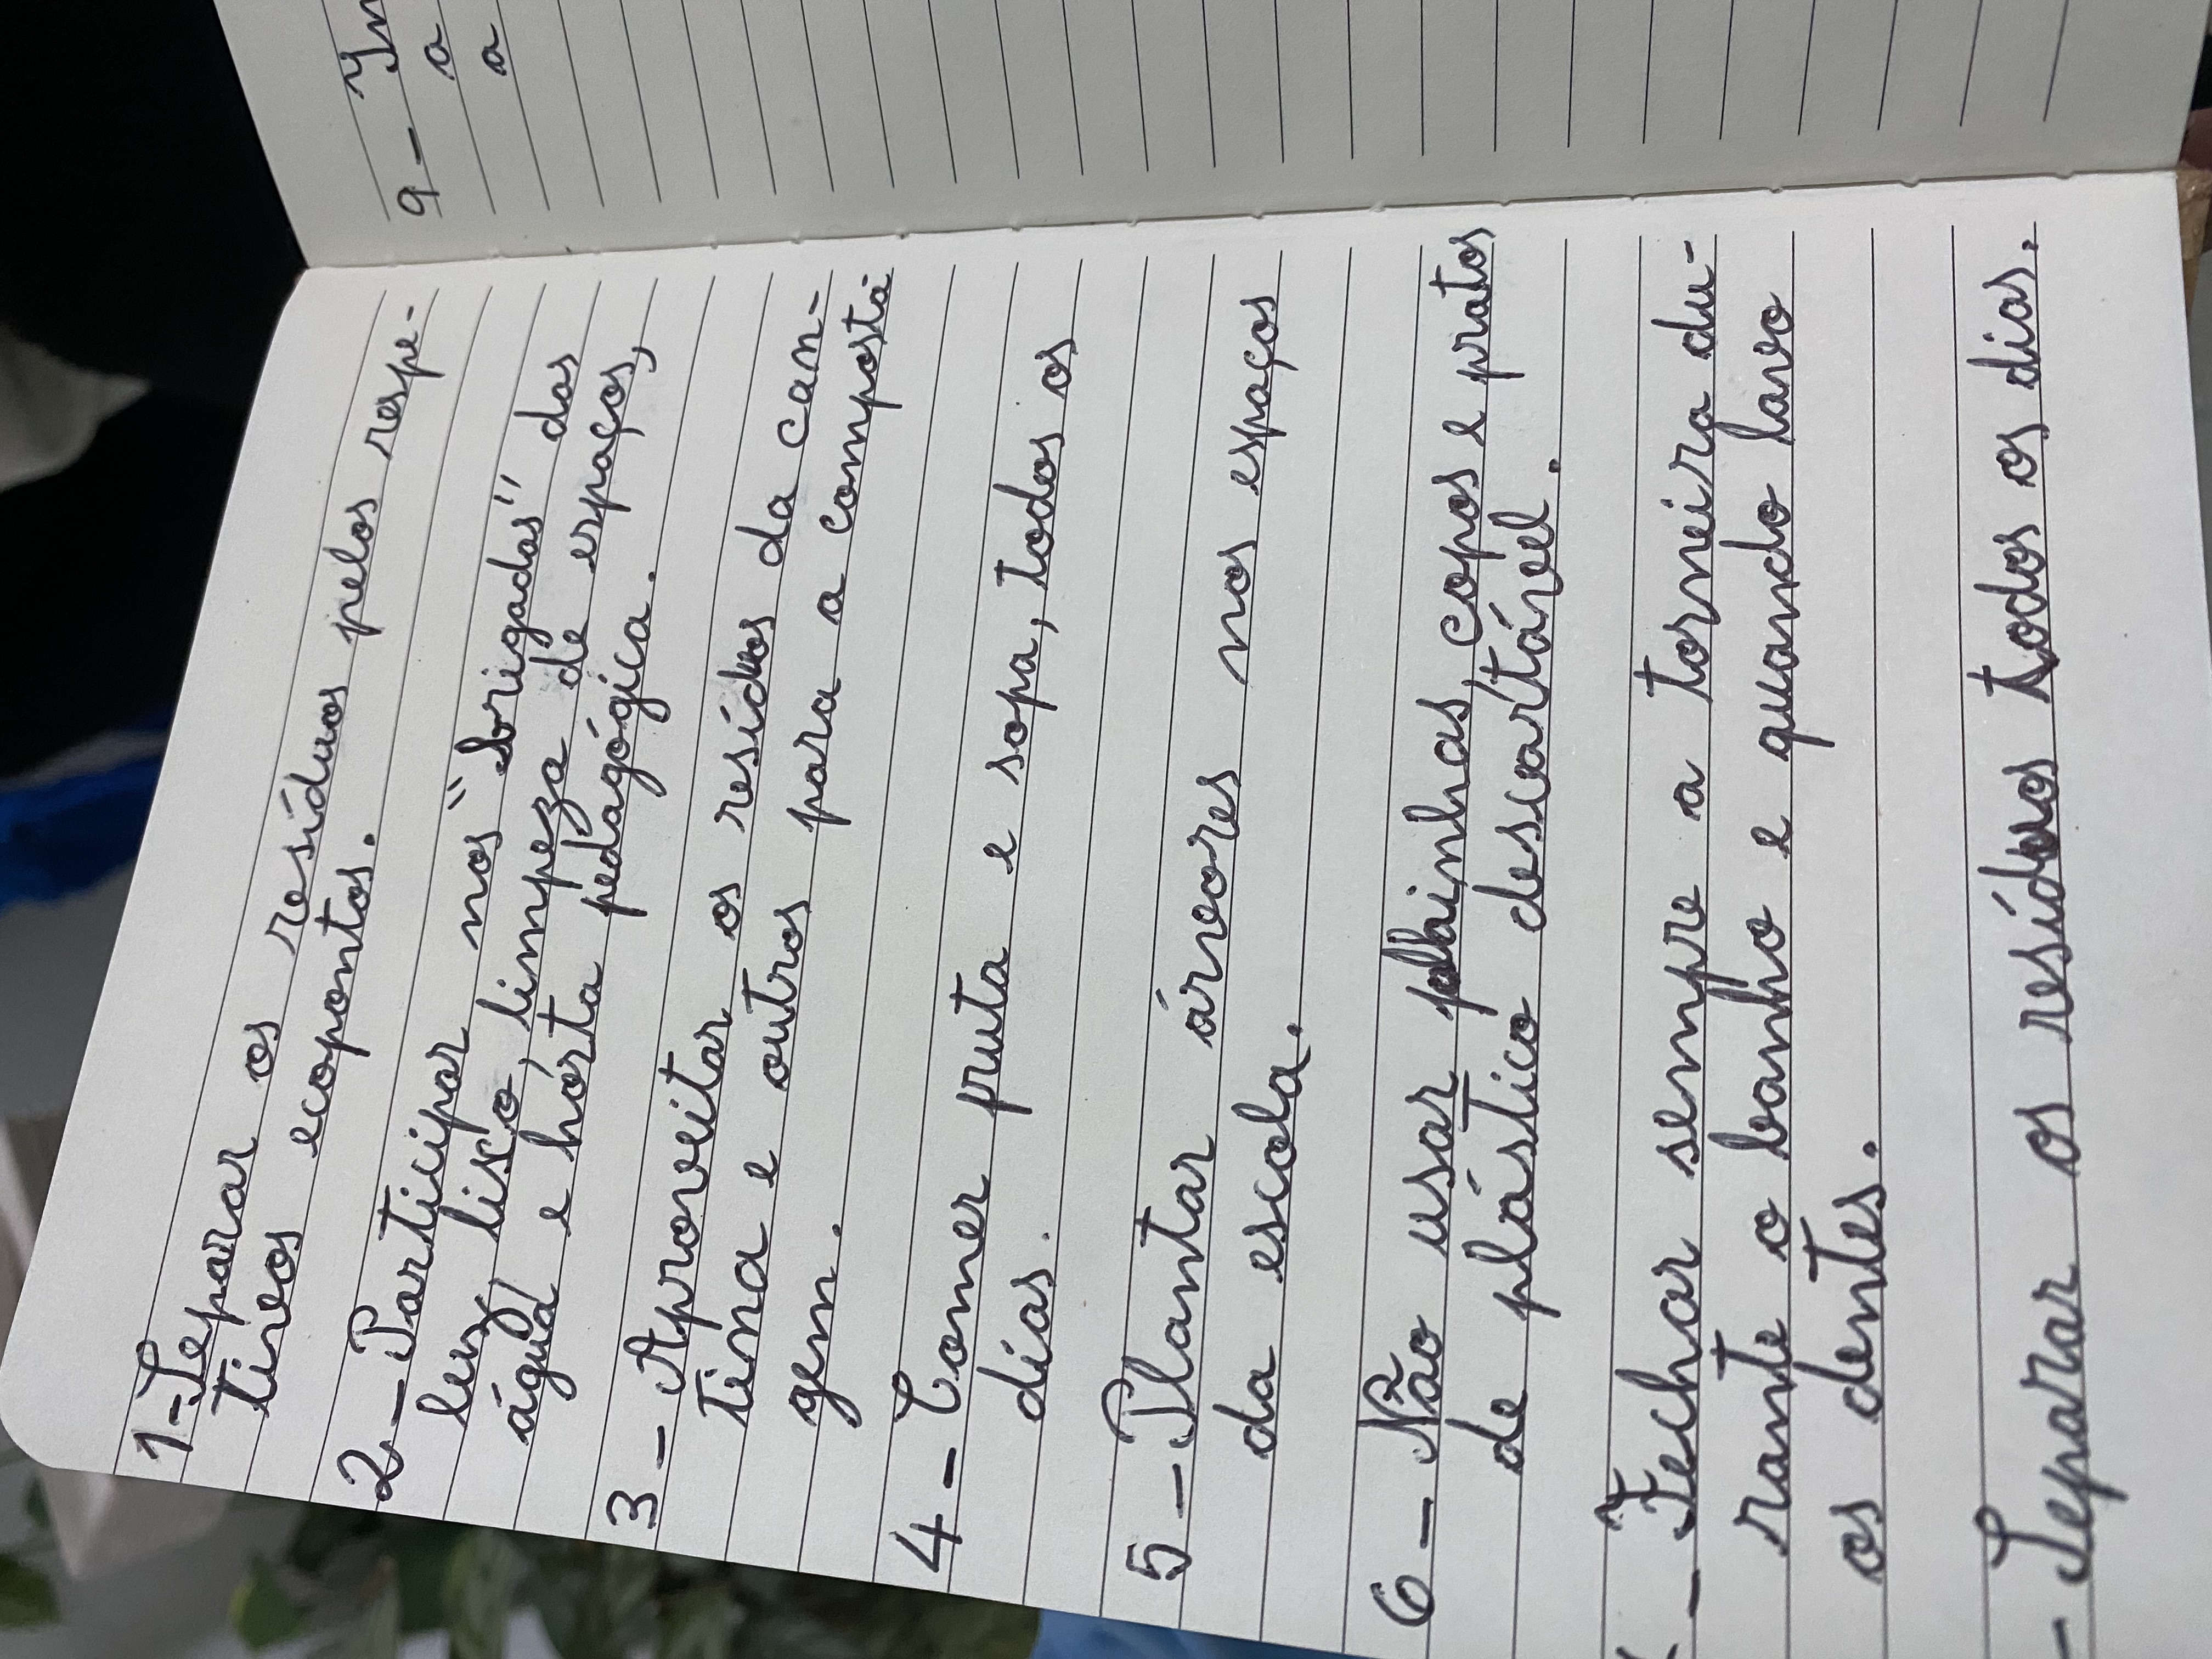 1-Separar os resíduos pelos respe-
tivos ecopontos.
2-Participar nos "brigadas" das
luz, lixo, limpeza de espaços,
água e horta pedagógica.
3-Aproveitar os resíduos da can-
tina e outros para a compostá
gem.
4-Comer fruta e sopa, todos os
dias.
5-Plantar árvores nos espaços
da escola.
6-Não usar palhinhas, copos e pratos
de plástico descartável.
-Fechar sempre a torneira du-
rante o banho e quando lavo
os dentes.
-Separar os resíduos todos os dias.
9-
a
a